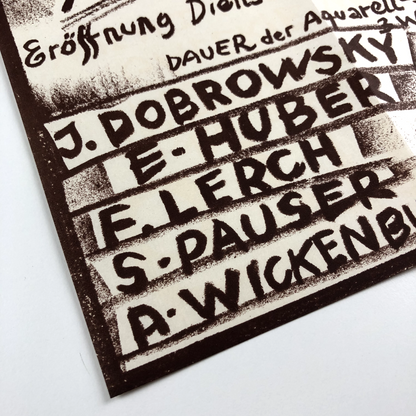 Eröffnung Diens
DAUER der Aquarell-
J. DOBROWSKY
E. HUBER
F. LERCH
S. PAUSER
A. WICKENB